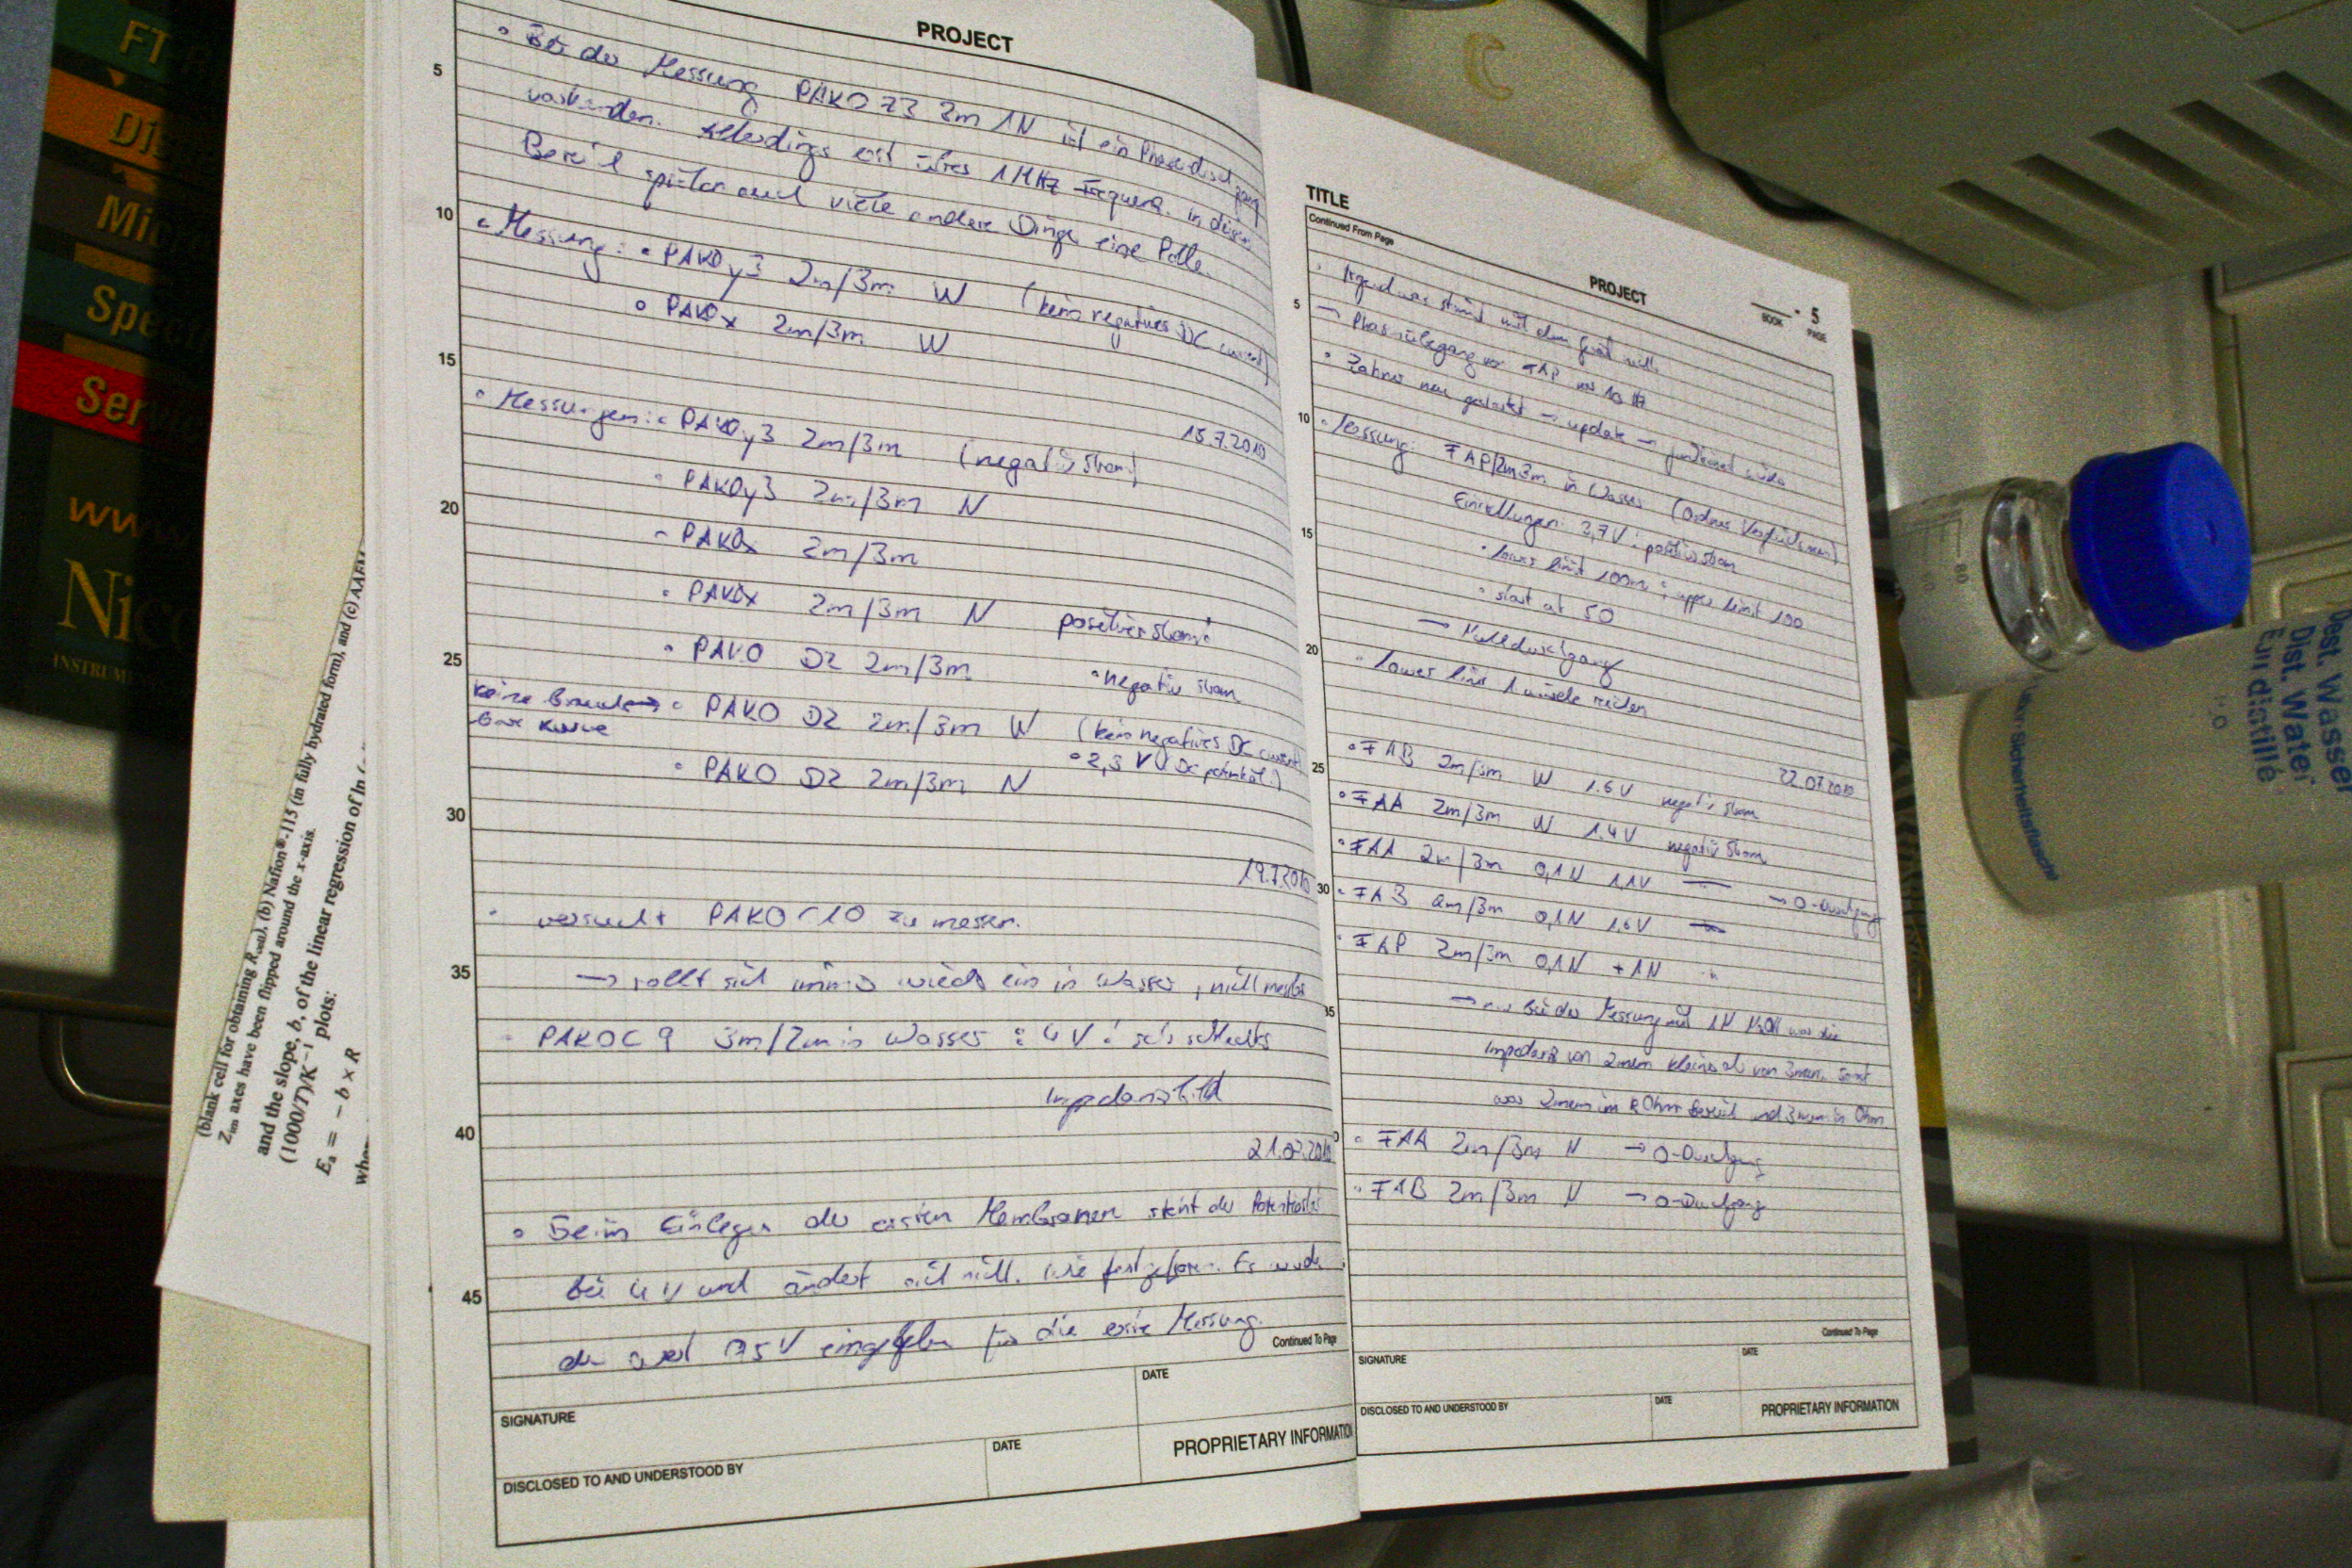 FT
Dis
Mic
Spect
Ser
www
Nico
INSTRUM
(blank cell for obtaining R), (b) Nafion®-115 (in fully hydrated form), and (c) AAEM
Zim axes have been flipped around the x-axis.
and the slope, b, of the linear regression of ln (
(1000/T)/K⁻¹ plots:
Ea = − b × R
PROJECT
5
10
15
20
25
30
35
40
45
• Bei der Messung PAKO Z3 2m 1N ist ein Phasendurchgang
vorhanden. Allerdings erst über 1MHz Frequenz. in diesem
Bereich spielen auch viele andere Dinge eine Rolle.
• Messung: • PAKOy3 2m/3m W (kein negatives DC current)
• PAKOx 2m/3m W
15.7.2010
• Messungen: • PAKOy3 2m/3m (negativ Strom)
• PAKOy3 2m/3m N
• PAKOx 2m/3m
• PAKOx 2m/3m N positiver Strom!
• PAKO D2 2m/3m • negativ Strom
keine brauchbare Kurve → • PAKO D2 2m/3m W (kein negatives DC current)
• PAKO D2 2m/3m N • 2,3 V (DC potential!)
19.7.2010
• versucht PAKO C10 zu messen.
→ rollt sich immer wieder ein in Wasser, nicht messbar
• PAKO C9 3m/2m in Wasser : 4 V ! sehr schlechtes
Impedanzbild
21.07.2010
• Beim Einlegen der ersten Membranen steht der Potentiostat
bei 4 V und ändert sich nicht. Wie festgefroren. Es wurde
der Wert 0,5 V eingegeben für die erste Messung.
Continued To Page
SIGNATURE
DATE
DISCLOSED TO AND UNDERSTOOD BY
DATE
PROPRIETARY INFORMATION
TITLE
Continued From Page
PROJECT
BOOK
5
PAGE
5
10
15
20
25
30
35
• Irgendwas stimmt mit dem Gerät nicht.
→ Phasenübergang von FAP
• Zahner neu gestartet → update → funktioniert wieder
• Messung: FAP 2m/3m in Wasser
Einstellungen: 3,7 V : positiv Strom
• lower limit 100m ; upper limit 100
• start at 50
→ Nulldurchgang
• lower limit 1 würde reichen
22.07.2010
• FAB 2m/3m W 1.6V negativ Strom
• FAA 2m/3m W 1.4V negativ Strom
• FAA 2m/3m 0,1N 1,1V → 0-Durchgang
• FAB 2m/3m 0,1N 1,6V
• FAP 2m/3m 0,1N + 1N
→ nur bei der Messung mit 1N NaOH war die
Impedanz von 2mem kleiner als von 3mem. Sonst
war 2mem im kOhm Bereich und 3mem in Ohm
• FAA 2m/3m N → 0-Durchgang
• FAB 2m/3m N → 0-Durchgang
Continued To Page
SIGNATURE
DATE
DISCLOSED TO AND UNDERSTOOD BY
DATE
PROPRIETARY INFORMATION
80
Dest. Wasser
Dist. Water
Eau distillée
Sicherheitsflasche